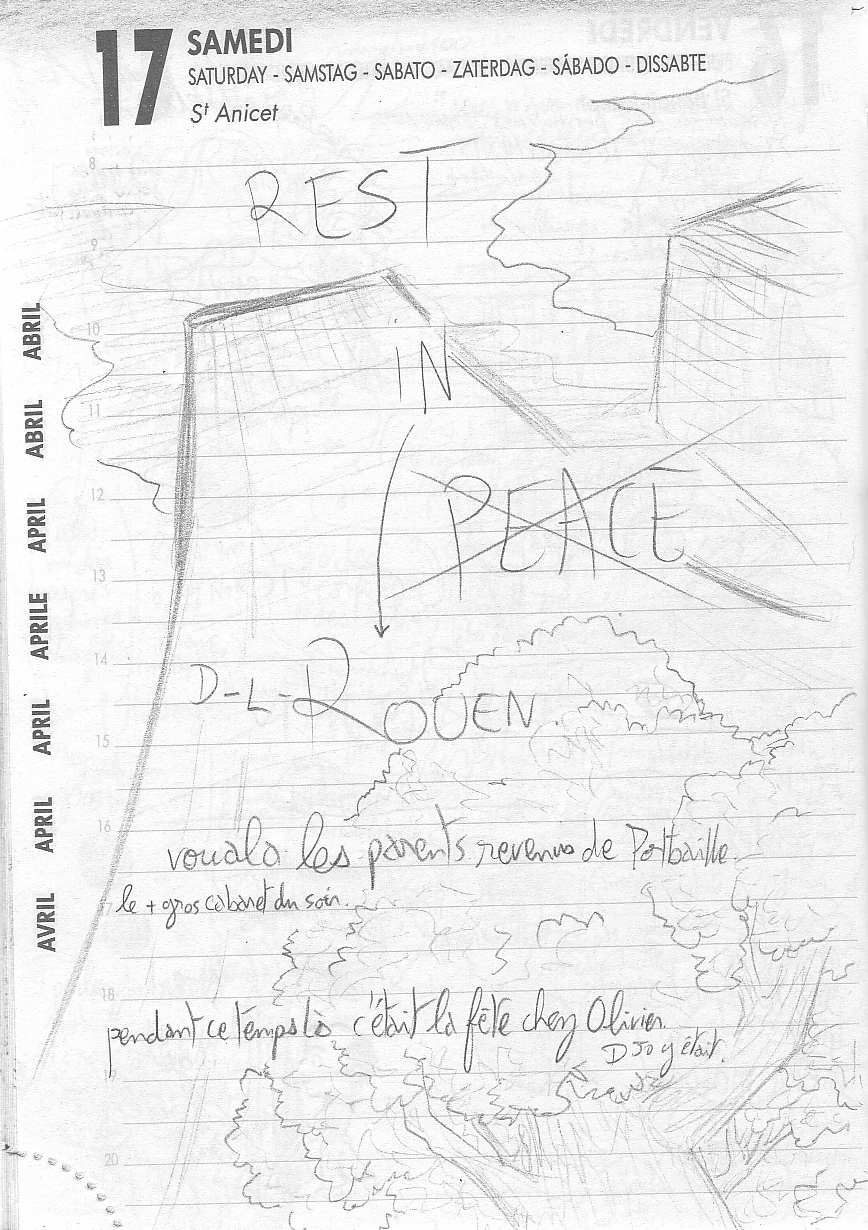 17 SAMEDI
SATURDAY - SAMSTAG - SABATO - ZATERDAG - SÁBADO - DISSABTE
St Anicet
8
REST
9
10
IN
11
12
PEACE
13
14
D-L-ROUEN
15
16
vouala les parents revenus de Portbaille.
le + gros cabaret du soir.
18
pendant ce temps là c'était la fête chez Olivier.
DJo y était.
20
AVRIL APRIL APRIL APRILE APRIL ABRIL ABRIL